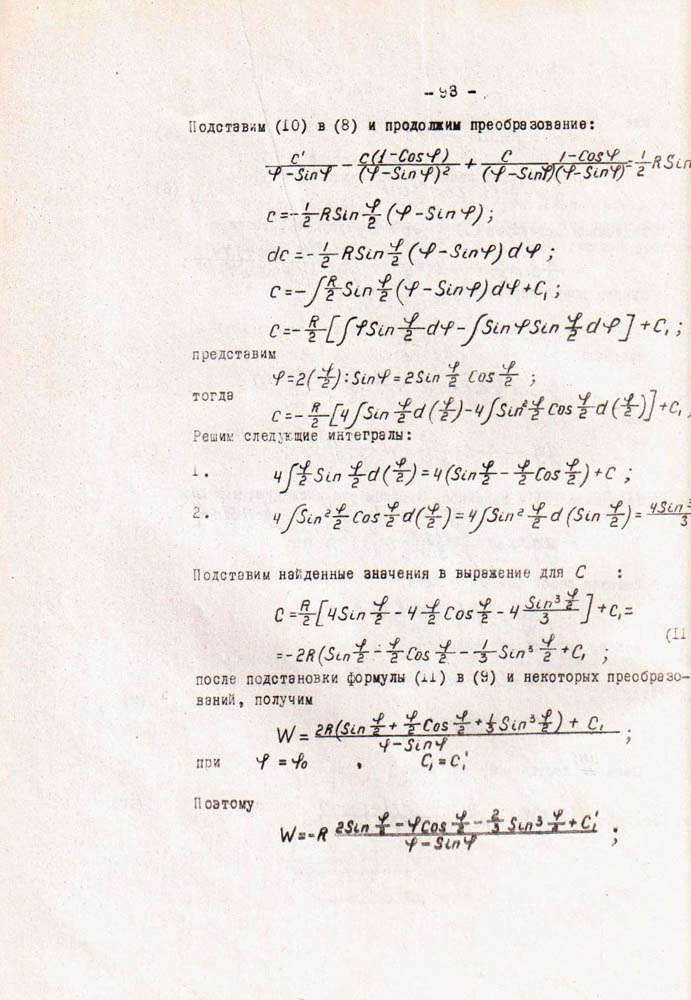 - 98 -
Подставим (10) в (8) и продолжим преобразование:
C'/(φ-Sinφ) - C(1-Cosφ)/(φ-Sinφ)² + C/(φ-Sinφ) (1-Cosφ)/(φ-Sinφ) = 1/2 RSin
C=-1/2 RSin φ/2 (φ-Sinφ);
dc=-1/2 RSin φ/2 (φ-Sinφ)dφ;
C=-∫R/2 Sin φ/2 (φ-Sinφ)dφ+C₁;
C=-R/2[∫φSin φ/2 dφ-∫SinφSin φ/2 dφ]+C₁;
представим
φ=2(φ/2):Sinφ=2Sin φ/2 Cos φ/2;
тогда
C=-R/2[4∫Sin φ/2 d(φ/2)-4∫Sin² φ/2 Cos φ/2 d(φ/2)]+C₁,
Решим следующие интегралы:
1. 4∫φ/2 Sin φ/2 d(φ/2)=4(Sin φ/2 - φ/2 Cos φ/2)+C ;
2. 4∫Sin² φ/2 Cos φ/2 d(φ/2)=4∫Sin² φ/2 d(Sin φ/2)= 4Sin³/3
Подставим найденные значения в выражение для C :
C=R/2[4Sin φ/2 - 4 φ/2 Cos φ/2 - 4 Sin³ φ/2 /3]+C₁=
(11
=-2R(Sin φ/2 - φ/2 Cos φ/2 - 1/3 Sin³ φ/2 +C₁ ;
после подстановки формулы (11) в (9) и некоторых преобразо-
ваний, получим
W= (2R(Sin φ/2 + φ/2 Cos φ/2 + 1/3 Sin³ φ/2) + C₁)/(φ-Sinφ) ;
при φ=φ₀ , C₁=C₁'
Поэтому
W=-R (2Sin φ/2 - φCos φ/2 - 2/3 Sin³ φ/2 + C₁')/(φ-Sinφ) ;